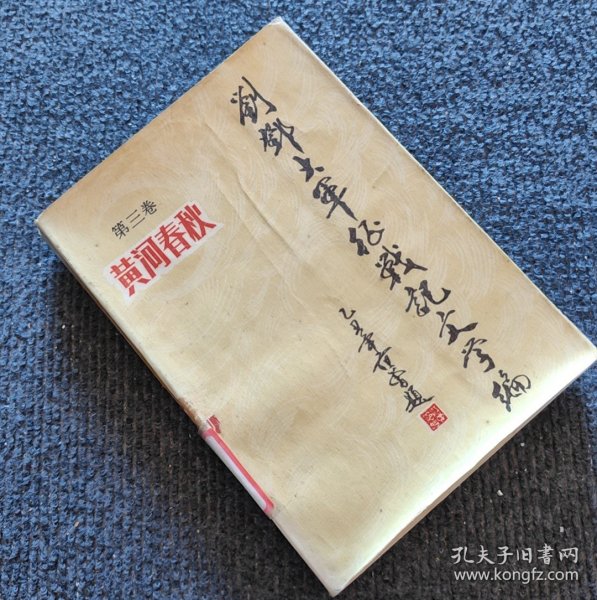 劉鄧大軍征戰記文学編
乙丑年
題
第三卷
黄河春秋
孔夫子旧書网
www.kongfz.com